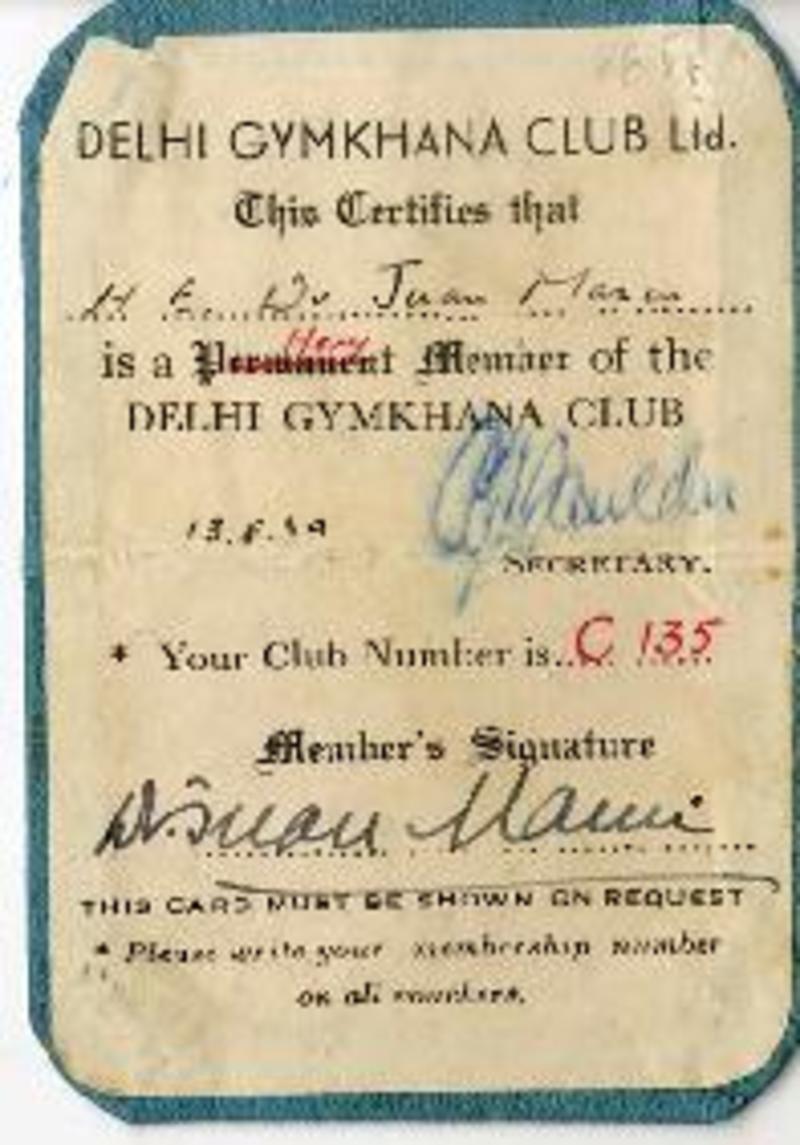 DELHI GYMKHANA CLUB Ltd.
This Certifies that
H. E. Dr Juan Marin
Hony
is a Permanent Member of the
DELHI GYMKHANA CLUB
SECRETARY.
* Your Club Number is C 135
Member's Signature
Dr. Juan Marin
THIS CARD MUST BE SHOWN ON REQUEST
* Please write your membership number
on all vouchers.